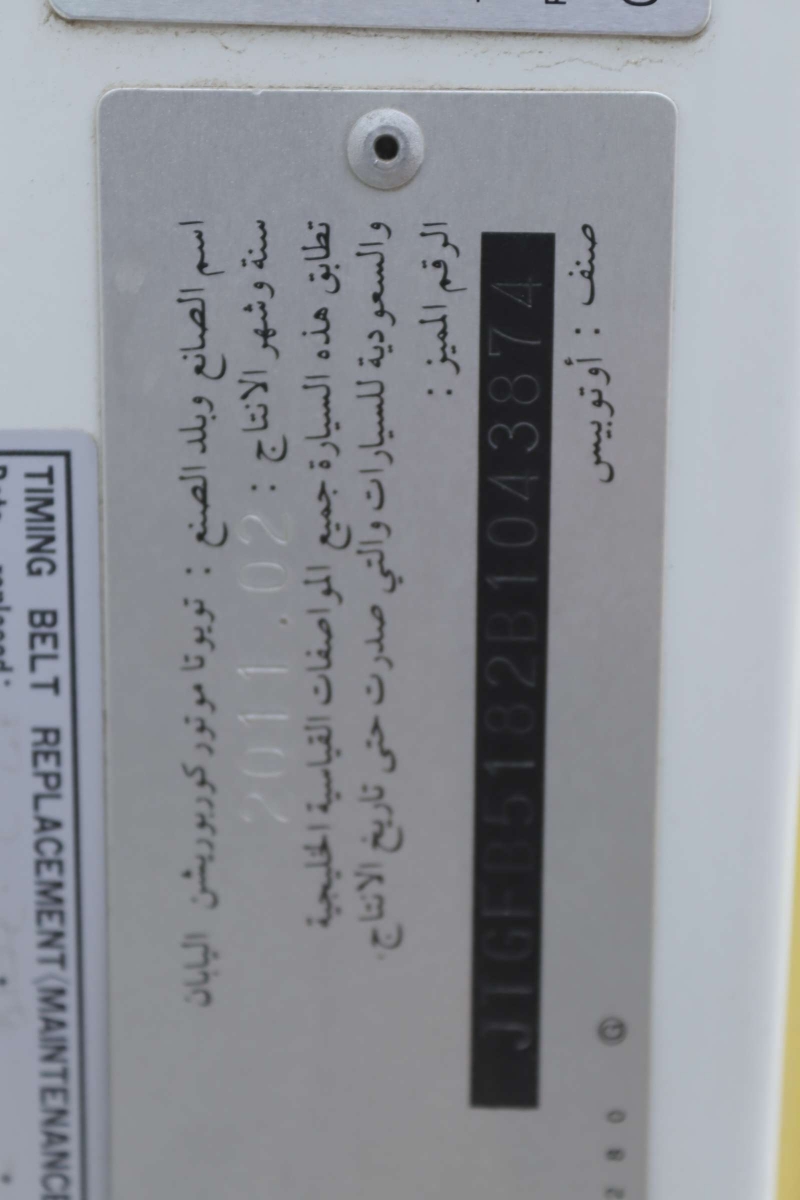 اسم الصانع وبلد الصنع : تويوتا موتور كوربوريشن اليابان
سنة وشهر الانتاج : 2011.02
تطابق هذه السيارة جميع المواصفات القياسية الخليجية
والسعودية للسيارات والتي صدرت حتى تاريخ الانتاج.
الرقم المميز :
JTGFB5182B1043874
صنف : أوتوبيس
TIMING BELT REPLACEMENT (MAINTENANCE